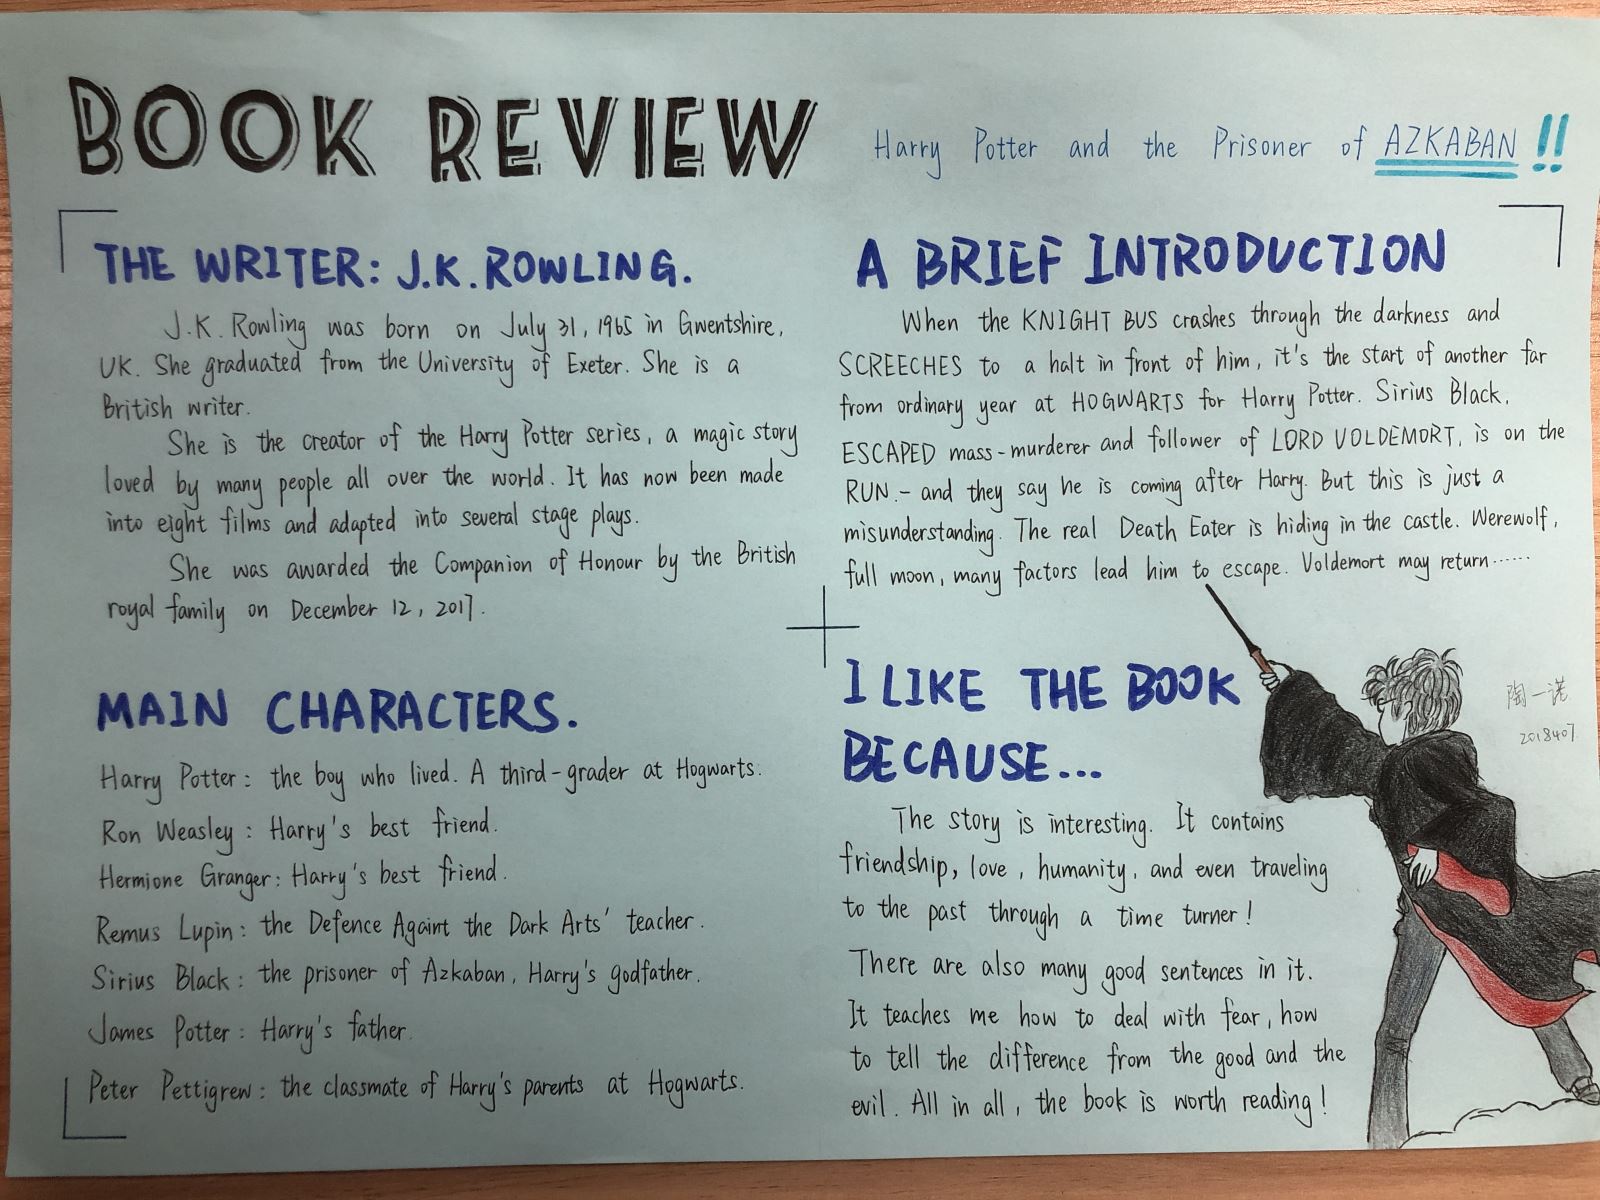 BOOK REVIEW
Harry Potter and the Prisoner of AZKABAN !!
THE WRITER: J.K.ROWLING.
J.K. Rowling was born on July 31, 1965 in Gwentshire,
UK. She graduated from the University of Exeter. She is a
British writer.
She is the creator of the Harry Potter series, a magic story
loved by many people all over the world. It has now been made
into eight films and adapted into several stage plays.
She was awarded the Companion of Honour by the British
royal family on December 12, 2017.
A BRIEF INTRODUCTION
When the KNIGHT BUS crashes through the darkness and
SCREECHES to a halt in front of him, it's the start of another far
from ordinary year at HOGWARTS for Harry Potter. Sirius Black,
ESCAPED mass-murderer and follower of LORD VOLDEMORT, is on the
RUN.- and they say he is coming after Harry. But this is just a
misunderstanding. The real Death Eater is hiding in the castle. Werewolf,
full moon, many factors lead him to escape. Voldemort may return......
MAIN CHARACTERS.
Harry Potter: the boy who lived. A third-grader at Hogwarts.
Ron Weasley: Harry's best friend.
Hermione Granger: Harry's best friend.
Remus Lupin: the Defence Againt the Dark Arts' teacher.
Sirius Black: the prisoner of Azkaban, Harry's godfather.
James Potter: Harry's father.
Peter Pettigrew: the classmate of Harry's parents at Hogwarts.
I LIKE THE BOOK
BECAUSE...
The story is interesting. It contains
friendship, love, humanity, and even traveling
to the past through a time turner!
There are also many good sentences in it.
It teaches me how to deal with fear, how
to tell the difference from the good and the
evil. All in all, the book is worth reading!
陶一诺
2018407